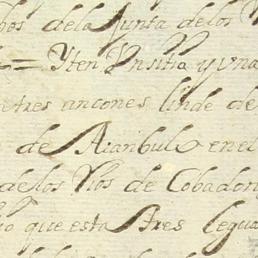 hos dela Junta delos
= Yten Un sitio y una
tres ancones linde de
de Aianbul en el
delos Rios de Cobadon
io que esta Tres legua